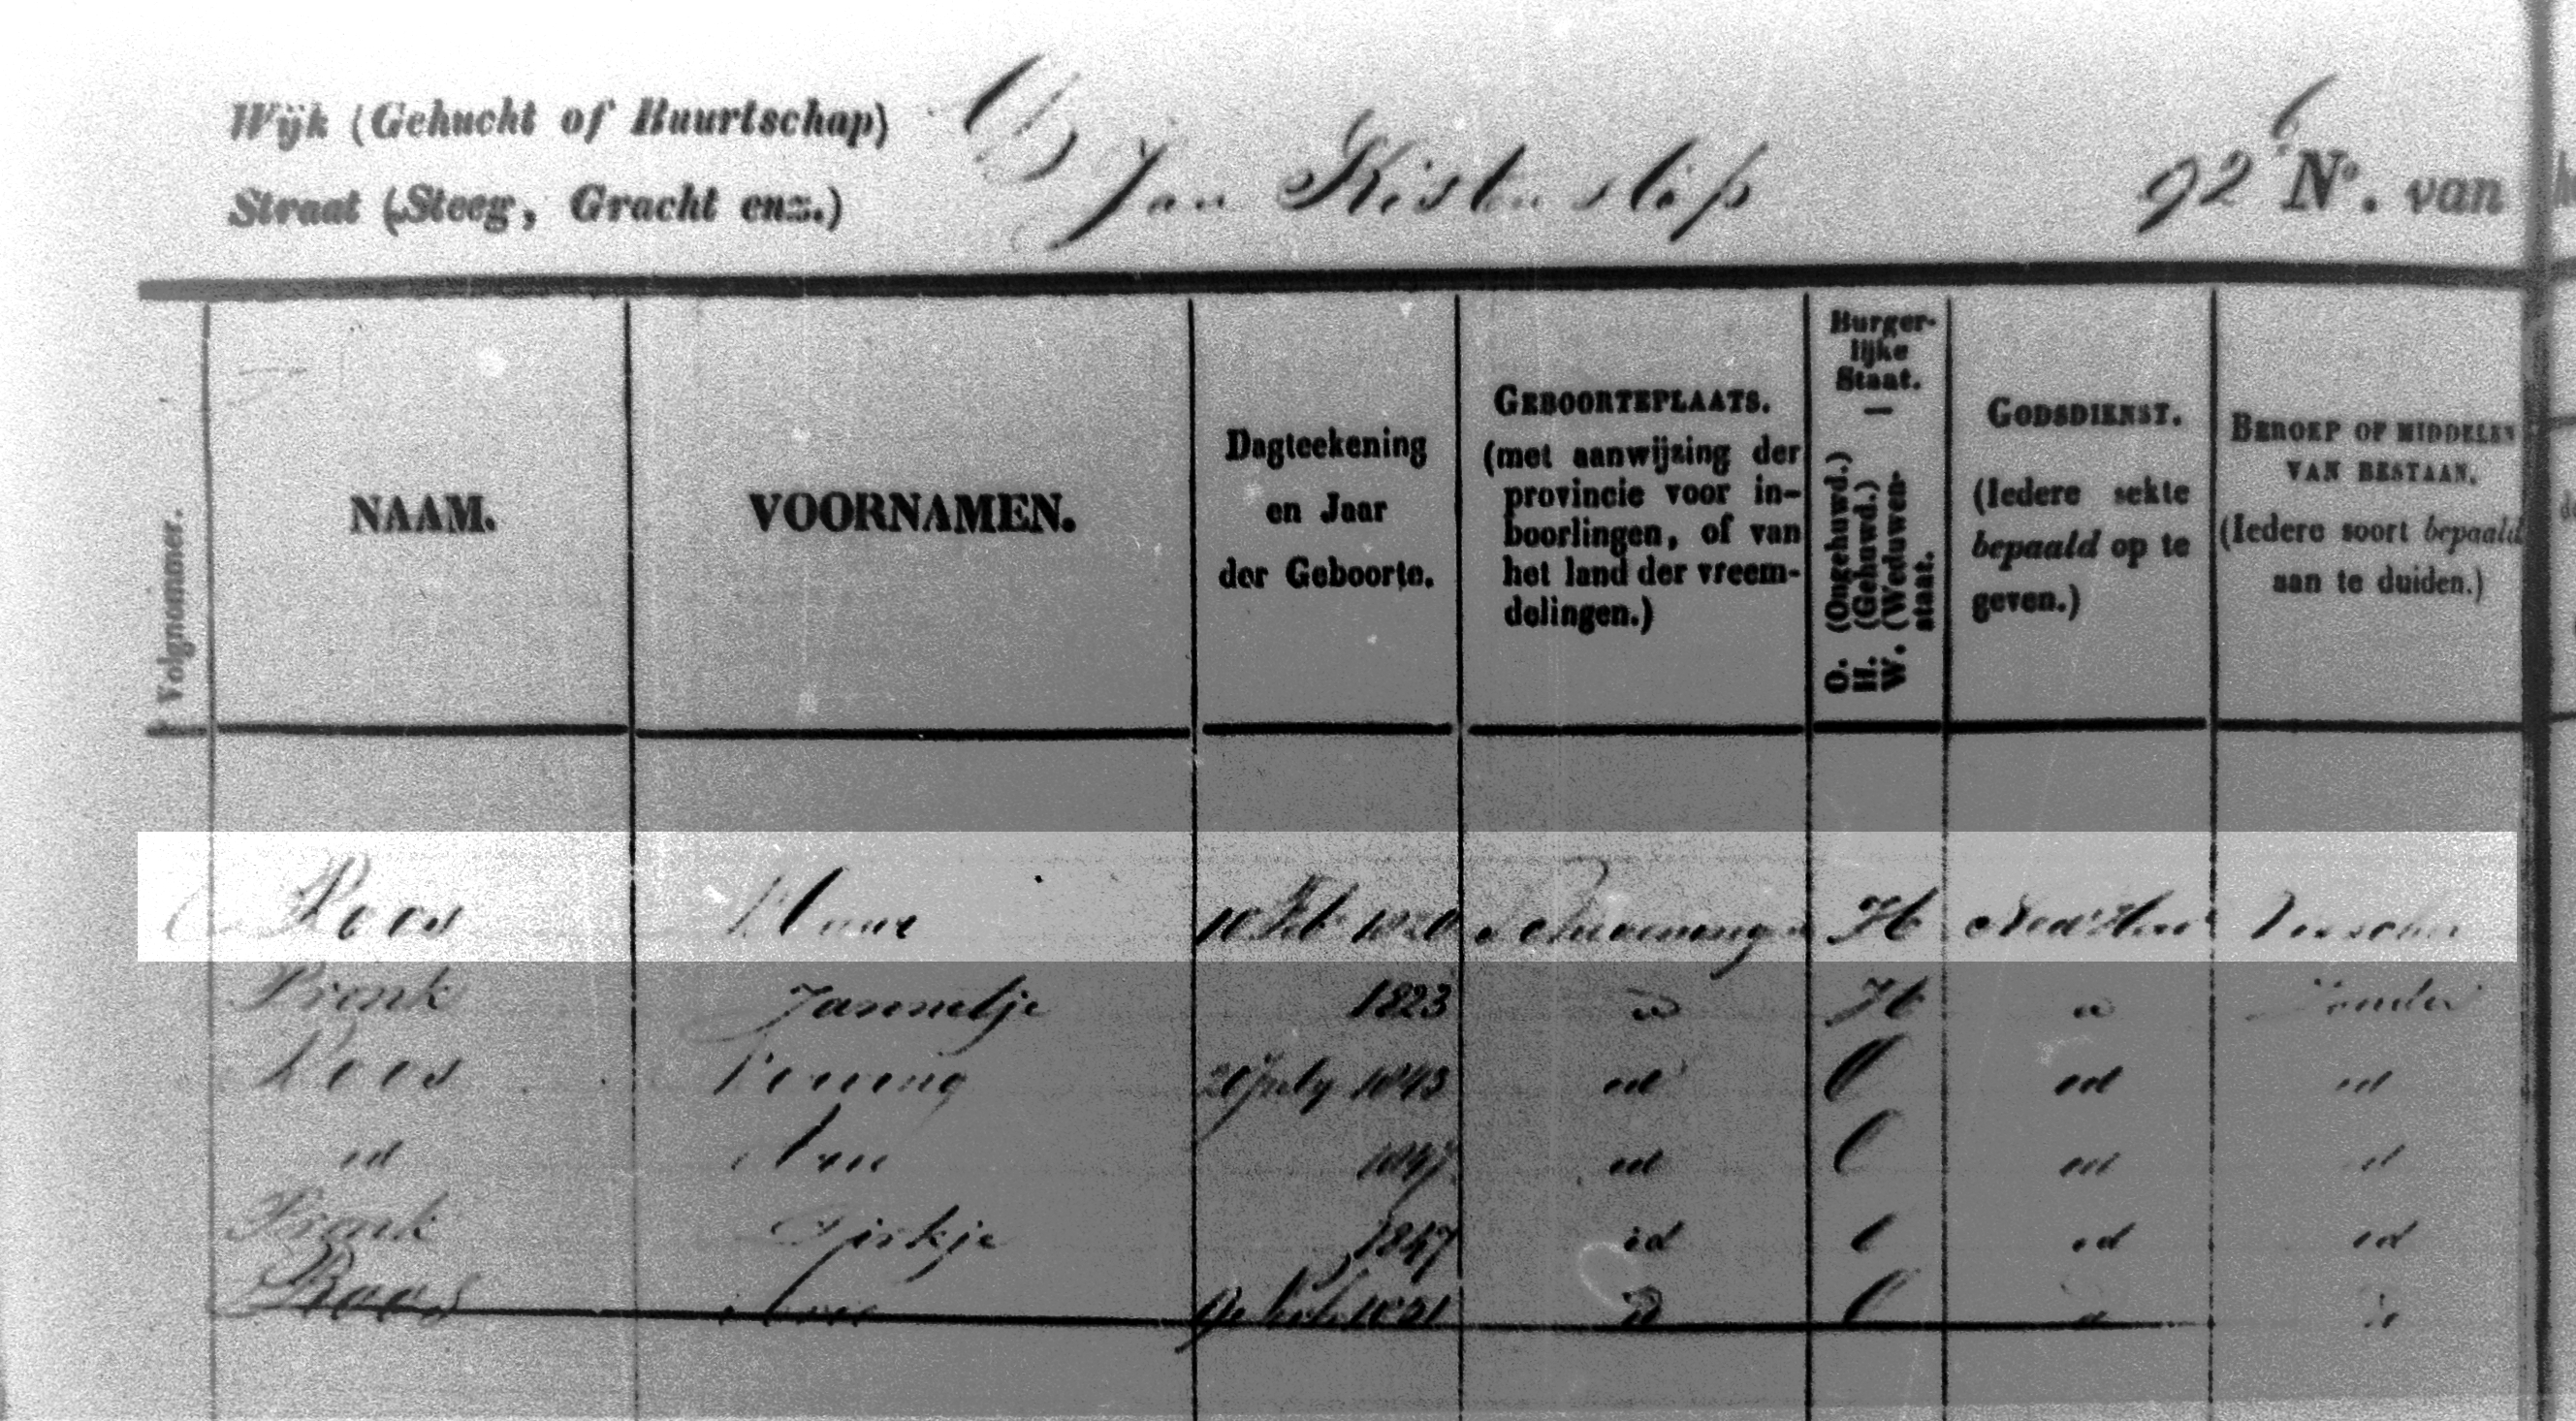 Wijk (Gehucht of Buurtschap)
Straat (Steeg, Gracht enz.) Jan Kisten slop 92 No. van
Volgnommer.
NAAM.
VOORNAMEN.
Dagteekening
en Jaar
der Geboorte.
GEBOORTEPLAATS.
(met aanwijzing der
provincie voor in-
boorlingen, of van
het land der vreem-
delingen.)
Burger-
lijke
Staat.
—
O. (Ongehuwd.)
H. (Gehuwd.)
W. (Weduwen-
staat.
GODSDIENST.
(Iedere sekte
bepaald op te
geven.)
BEROEP OF MIDDELEN
VAN BESTAAN.
(Iedere soort bepaald
aan te duiden.)
Roos 10 Feb 1820 Scheveningen H Ned Herv Visscher
Pronk Jannetje 1823 H Zonder
Roos Koning July 1843 id O id id
id Arie 1847 id O id id
Pronk Dirkje 1847 id O id id
Roos 1851 O